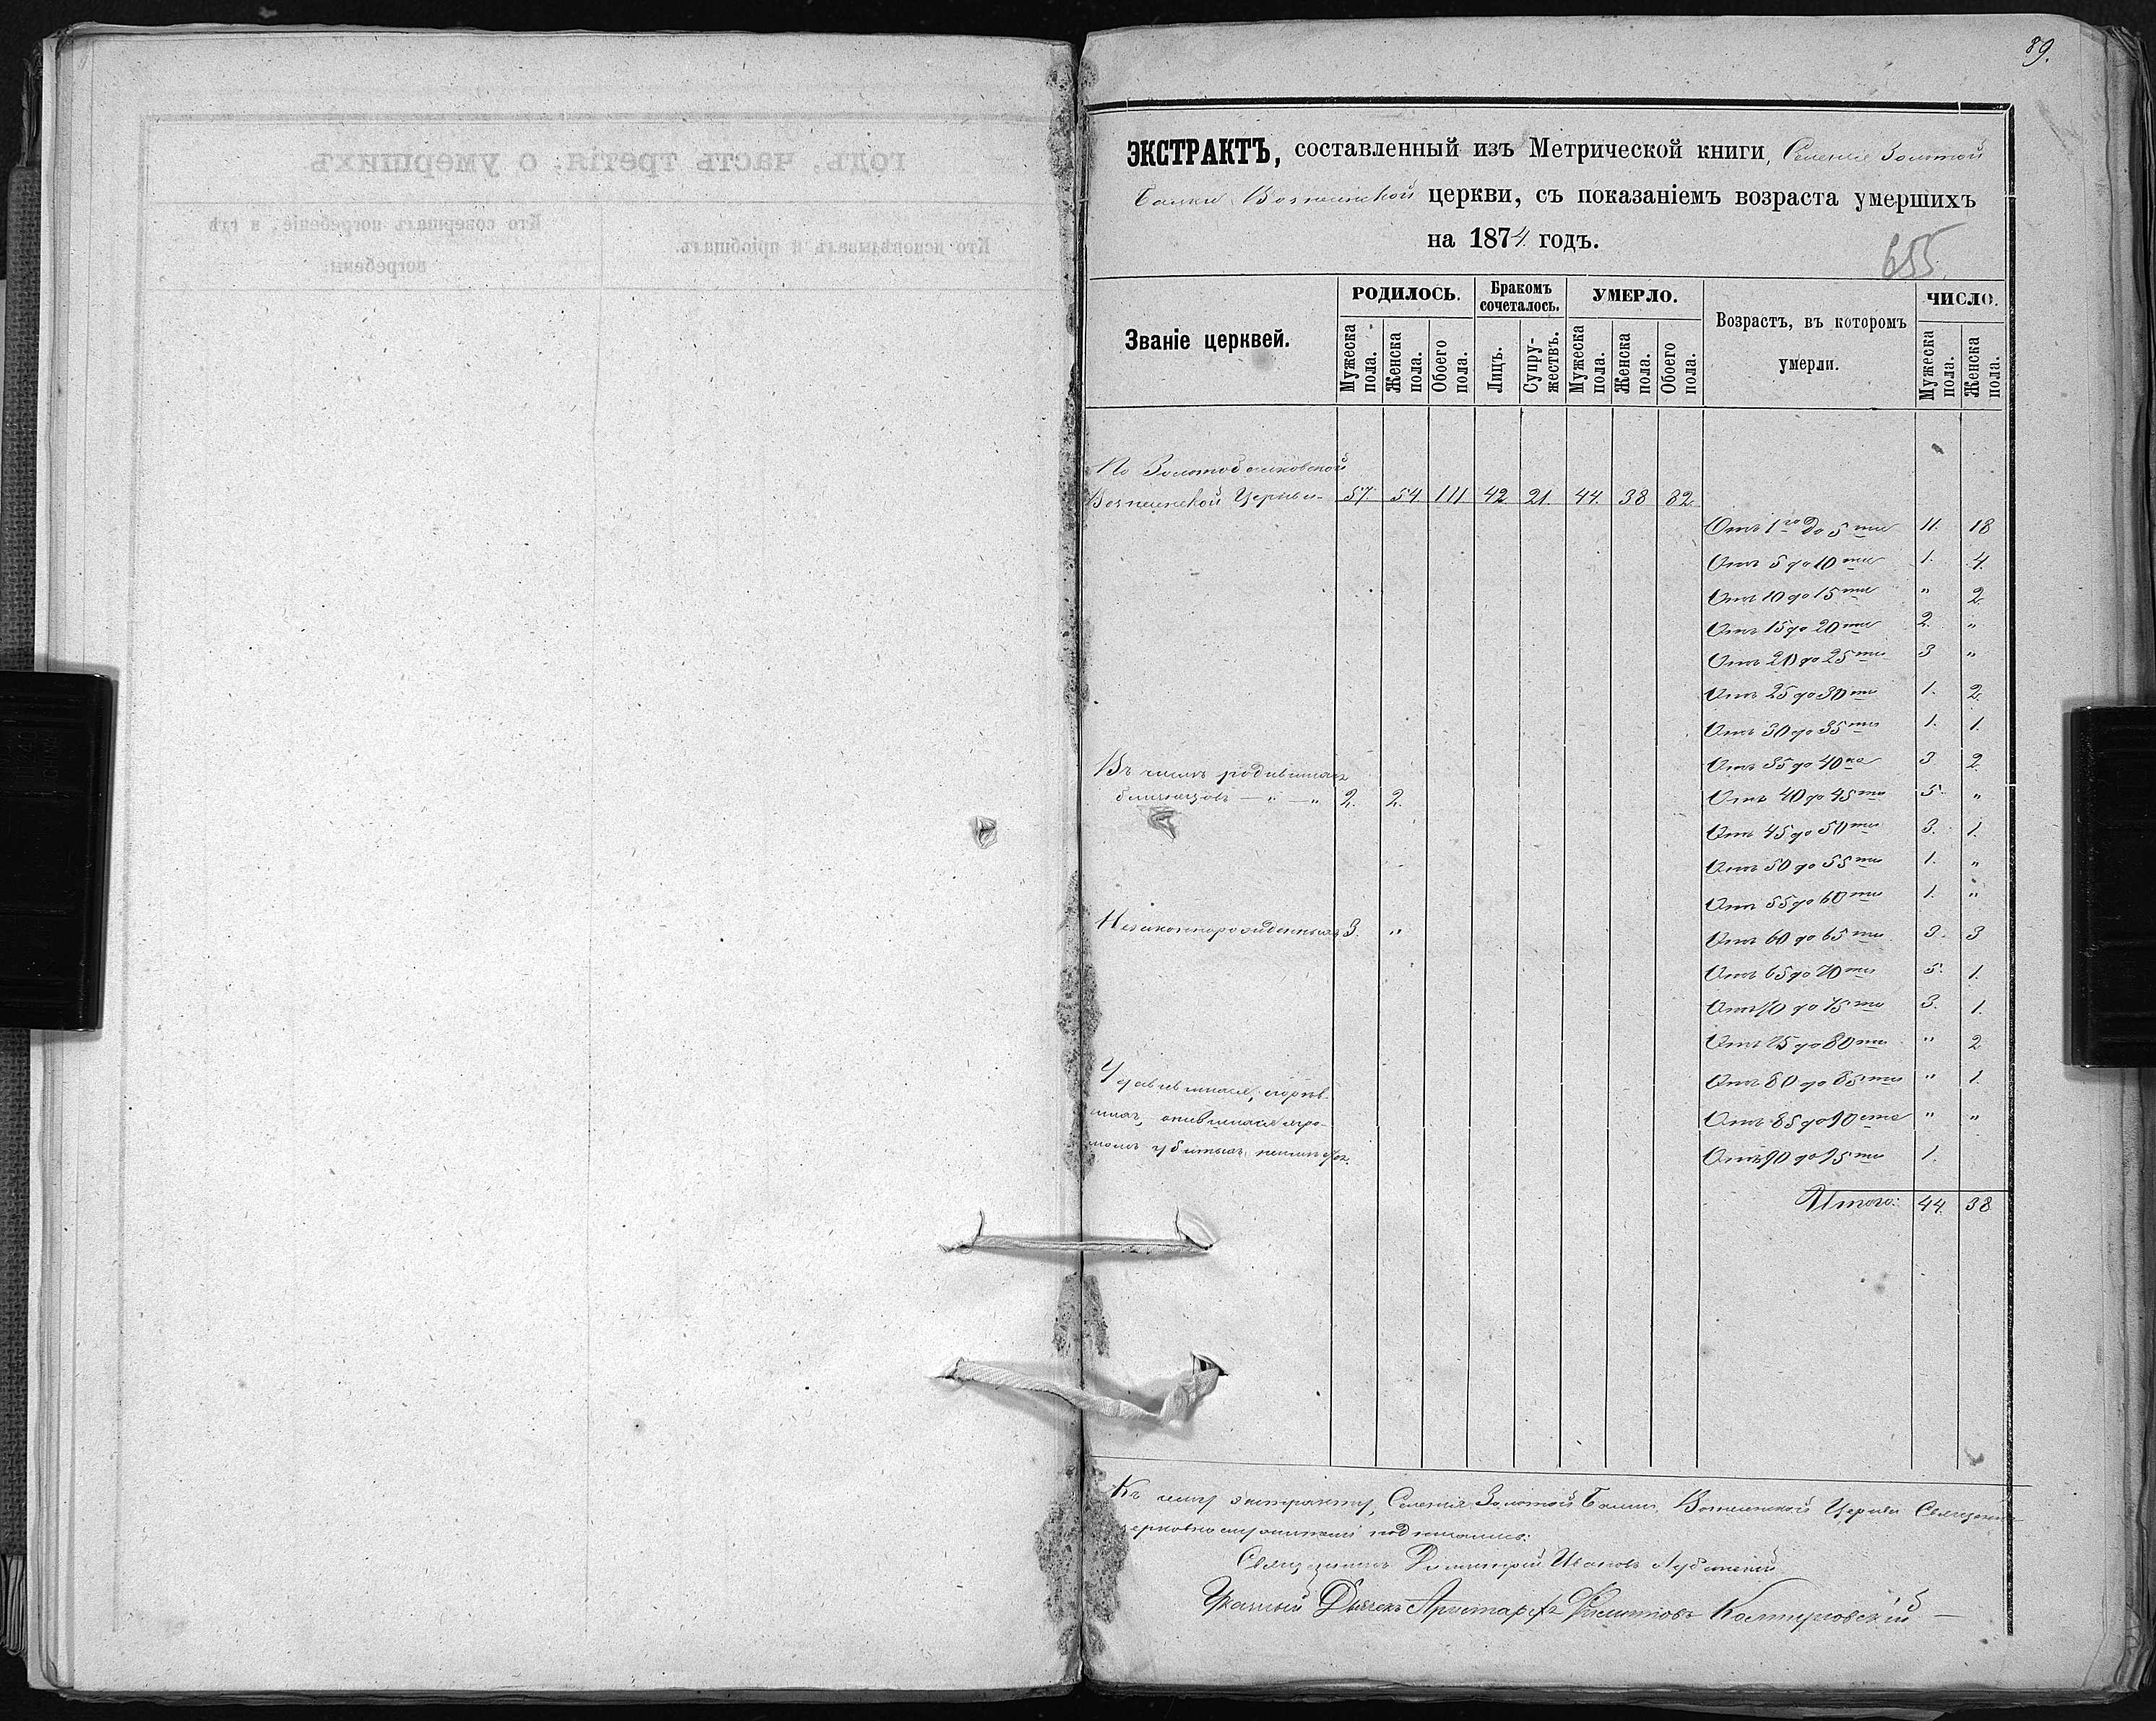 89.
ЭКСТРАКТЪ, составленный изъ Метрической книги, Селенія Золотой
Балки Вознесенской церкви, съ показаніемъ возраста умершихъ
на 1874 годъ.
655
Званіе церквей.
РОДИЛОСЬ.
Бракомъ сочеталось.
УМЕРЛО.
Возрастъ, въ которомъ умерли.
ЧИСЛО.
Мужеска пола. Женска пола. Обоего пола. Лицъ. Супружествъ. Мужеска пола. Женска пола. Обоего пола. Мужеска пола. Женска пола.
По Золотобалковской
Вознесенской Церкви 57. 54. 111 42 21. 44. 38 82.
Отъ 1го до 5ти 11. 18
Отъ 5 до 10ти 1. 4.
Отъ 10 до 15ти " 2.
Отъ 15 до 20ти 2. "
Отъ 20 до 25ти 3 "
Отъ 25 до 30ти 1. 2.
Отъ 30 до 35ти 1. 1.
Отъ 35 до 40ка 3. 2.
Въ числѣ родившихся
близнецовъ — " — " 2. 2.
Отъ 40 до 45ти 5. "
Отъ 45 до 50ти 3. 1.
Отъ 50 до 55ти 1. "
Отъ 55 до 60ти 1. "
Незаконнорожденныхъ 3. "
Отъ 60 до 65ти 3. 3
Отъ 65 до 70ти 5. 1.
Отъ 70 до 75ти 3. 1.
Отъ 75 до 80ти " 2
Отъ 80 до 85ти " 1.
Удавившихся, сгорѣв-
шихъ, опившихся гро-
момъ убитыхъ
Отъ 85 до 90ста " "
Отъ 90 до 95ти 1.
Итого: 44. 38
Къ сему экстракту, Селенія Золотой Балки Вознесенской Церкви Священно
церковнослужители подписались:
Священникъ Димитрій Ивановъ
Указный Дьячекъ Аристархъ
годъ, часть третія, о умершихъ
Кто исповѣдывалъ и пріобщалъ.
Кто совершалъ погребеніе, и гдѣ
погребены.